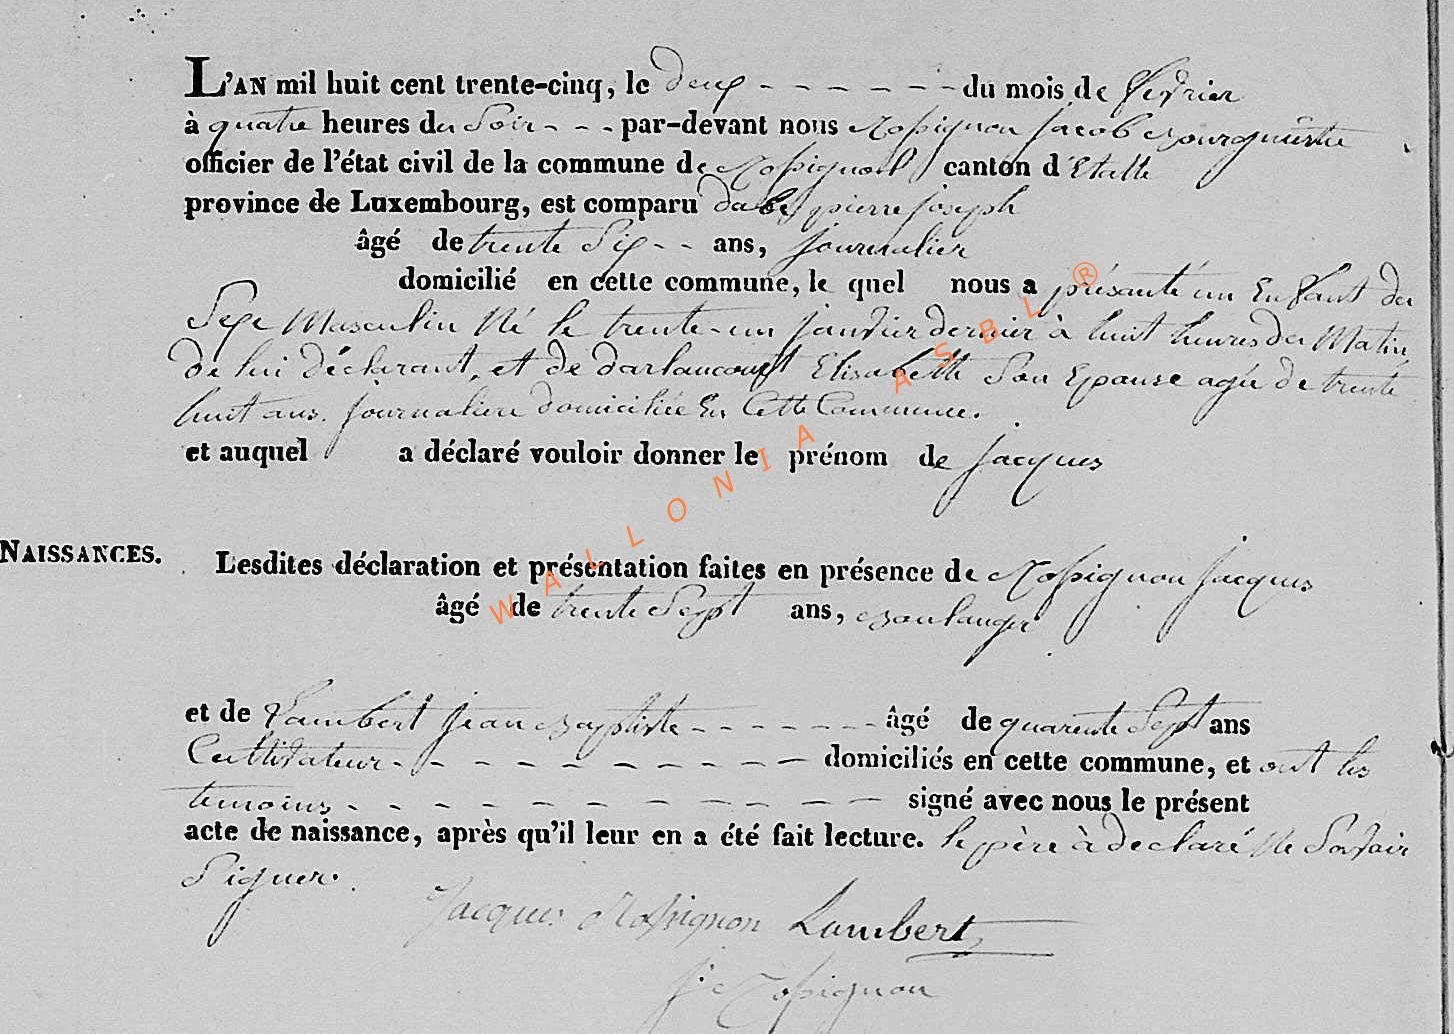 L'AN mil huit cent trente-cinq, le deux - - - - - - du mois de février
à quatre heures du Soir - - - par-devant nous Rossignon jacob Bourguestre
officier de l'état civil de la commune de Rossignol canton d'Etalle
province de Luxembourg, est comparu pierre joseph
âgé de trente Six - - ans, journalier
domicilié en cette commune, le quel nous a présanté un Enfant du
Sexe Masculin Né le trente-un janvier dernier à huit heures du Matin,
de lui Déclarant, et de darlancourt Elisabette Son Epouse agée de trente
huit ans. journalière domiciliée En Cette Commune.
et auquel a déclaré vouloir donner le prénom de jacques
NAISSANCES.
Lesdites déclaration et présentation faites en présence de Rossignon jacques
âgé de trente Sept ans, Boulanger
et de Lambert jean Baptiste - - - - - - âgé de quarente Sept ans
Cultivateur - - - - - - - - - - domiciliés en cette commune, et ont les
temoins - - - - - - - - - - - - signé avec nous le présent
acte de naissance, après qu'il leur en a été fait lecture. le père à déclaré Ne Savoir
Signer.
Jacques Rossignon Lambert
j Rossignon
WALLONIA ASBL ®